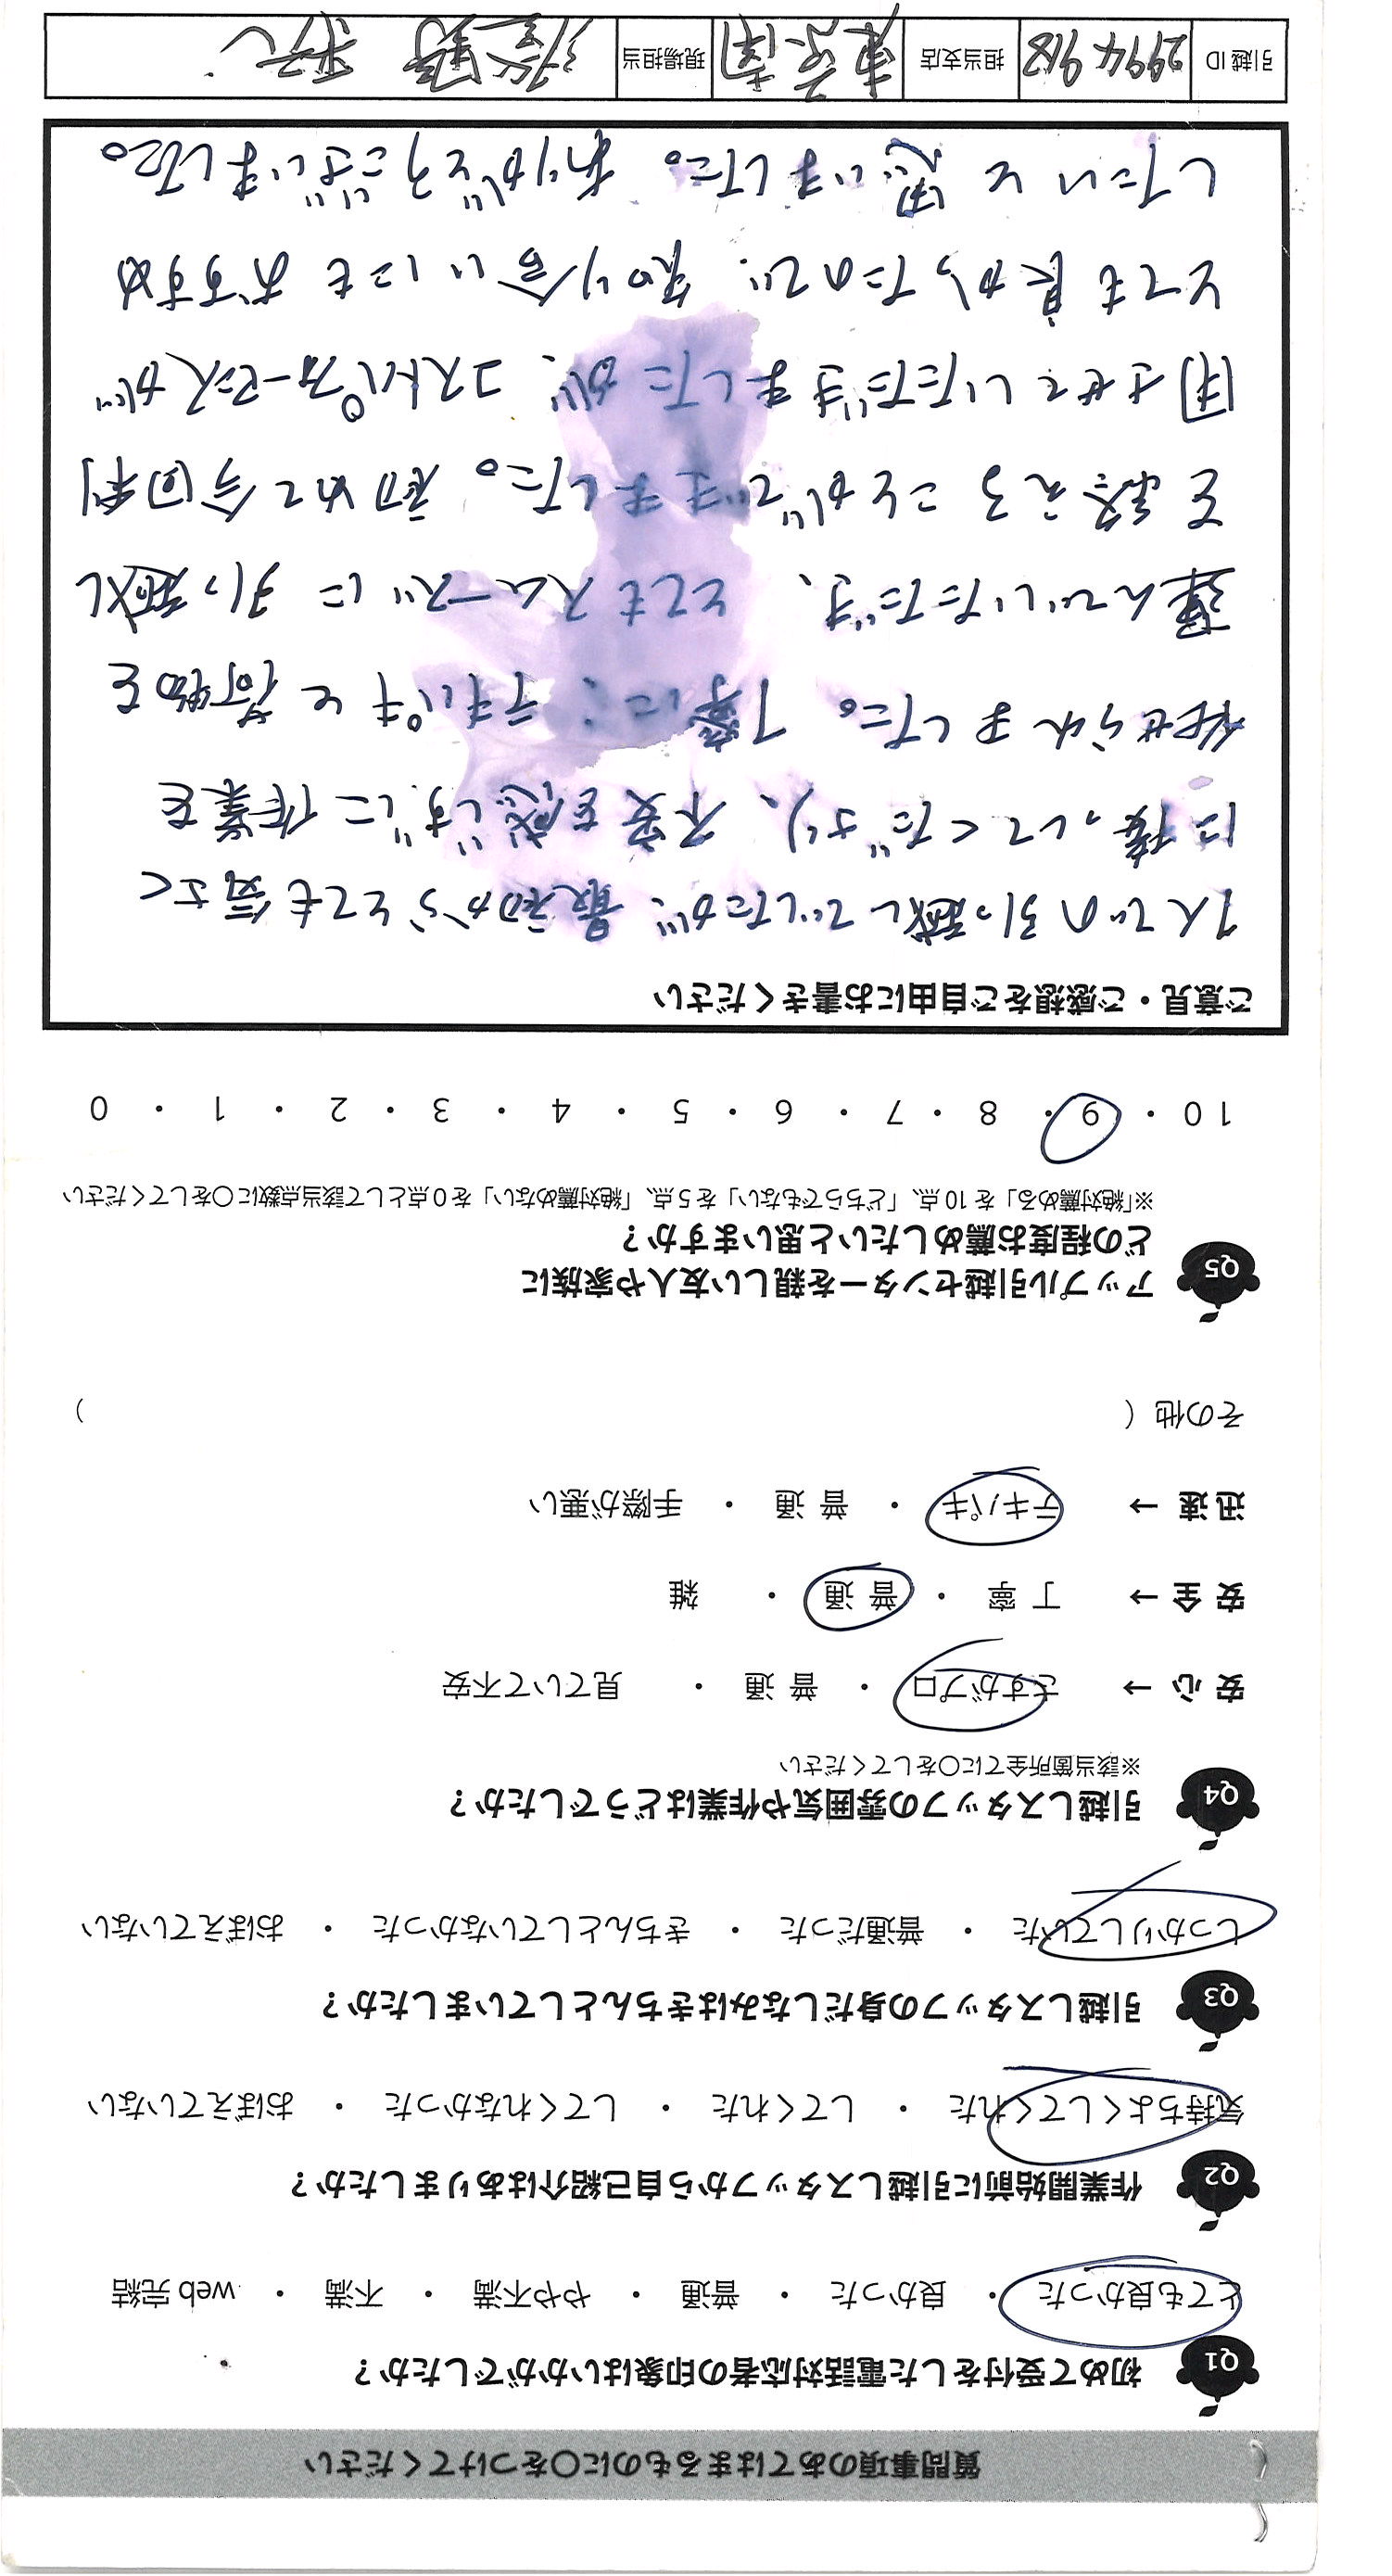 質問事項のあてはまるものに〇をつけてください
Q1 初めて受付をした電話対応者の印象はいかがでしたか？
とても良かった ・ 良かった ・ 普通 ・ やや不満 ・ 不満 ・ web 完結
Q2 作業開始前に引越しスタッフから自己紹介はありましたか？
気持ちよくしてくれた ・ してくれた ・ してくれなかった ・ おぼえていない
Q3 引越しスタッフの身だしなみはきちんとしていましたか？
しっかりしていた ・ 普通だった ・ きちんとしていなかった ・ おぼえていない
Q4 引越しスタッフの雰囲気や作業はどうでしたか？
※該当箇所全てに〇をしてください
安心 → さすがプロ ・ 普通 ・ 見ていて不安
安全 → 丁寧 ・ 普通 ・ 雑
迅速 → テキパキ ・ 普通 ・ 手際が悪い
その他（ ）
Q5 アップル引越センターを親しい友人や家族に
どの程度お薦めしたいと思いますか？
※「絶対薦める」を 10 点、「どちらでもない」を 5 点、「絶対薦めない」を 0 点として該当点数に〇をしてください
10 ・ 9 ・ 8 ・ 7 ・ 6 ・ 5 ・ 4 ・ 3 ・ 2 ・ 1 ・ 0
ご意見・ご感想をご自由にお書きください
1人での引っ越しでしたが、最初からとても気さく
に接してくださり、不安を感じずに作業を
任せられました。丁寧に、テキパキと荷物を
運んでいただき、とてもスムーズに引っ越し
を終えることができました。初めて今回利
用させていただきましたが、コストパフォーマンスが
とても良かったので、知り合いにもおすすめ
したいと思いました。ありがとうございました。
引越ID 2994918 担当支店 東京南 現場担当